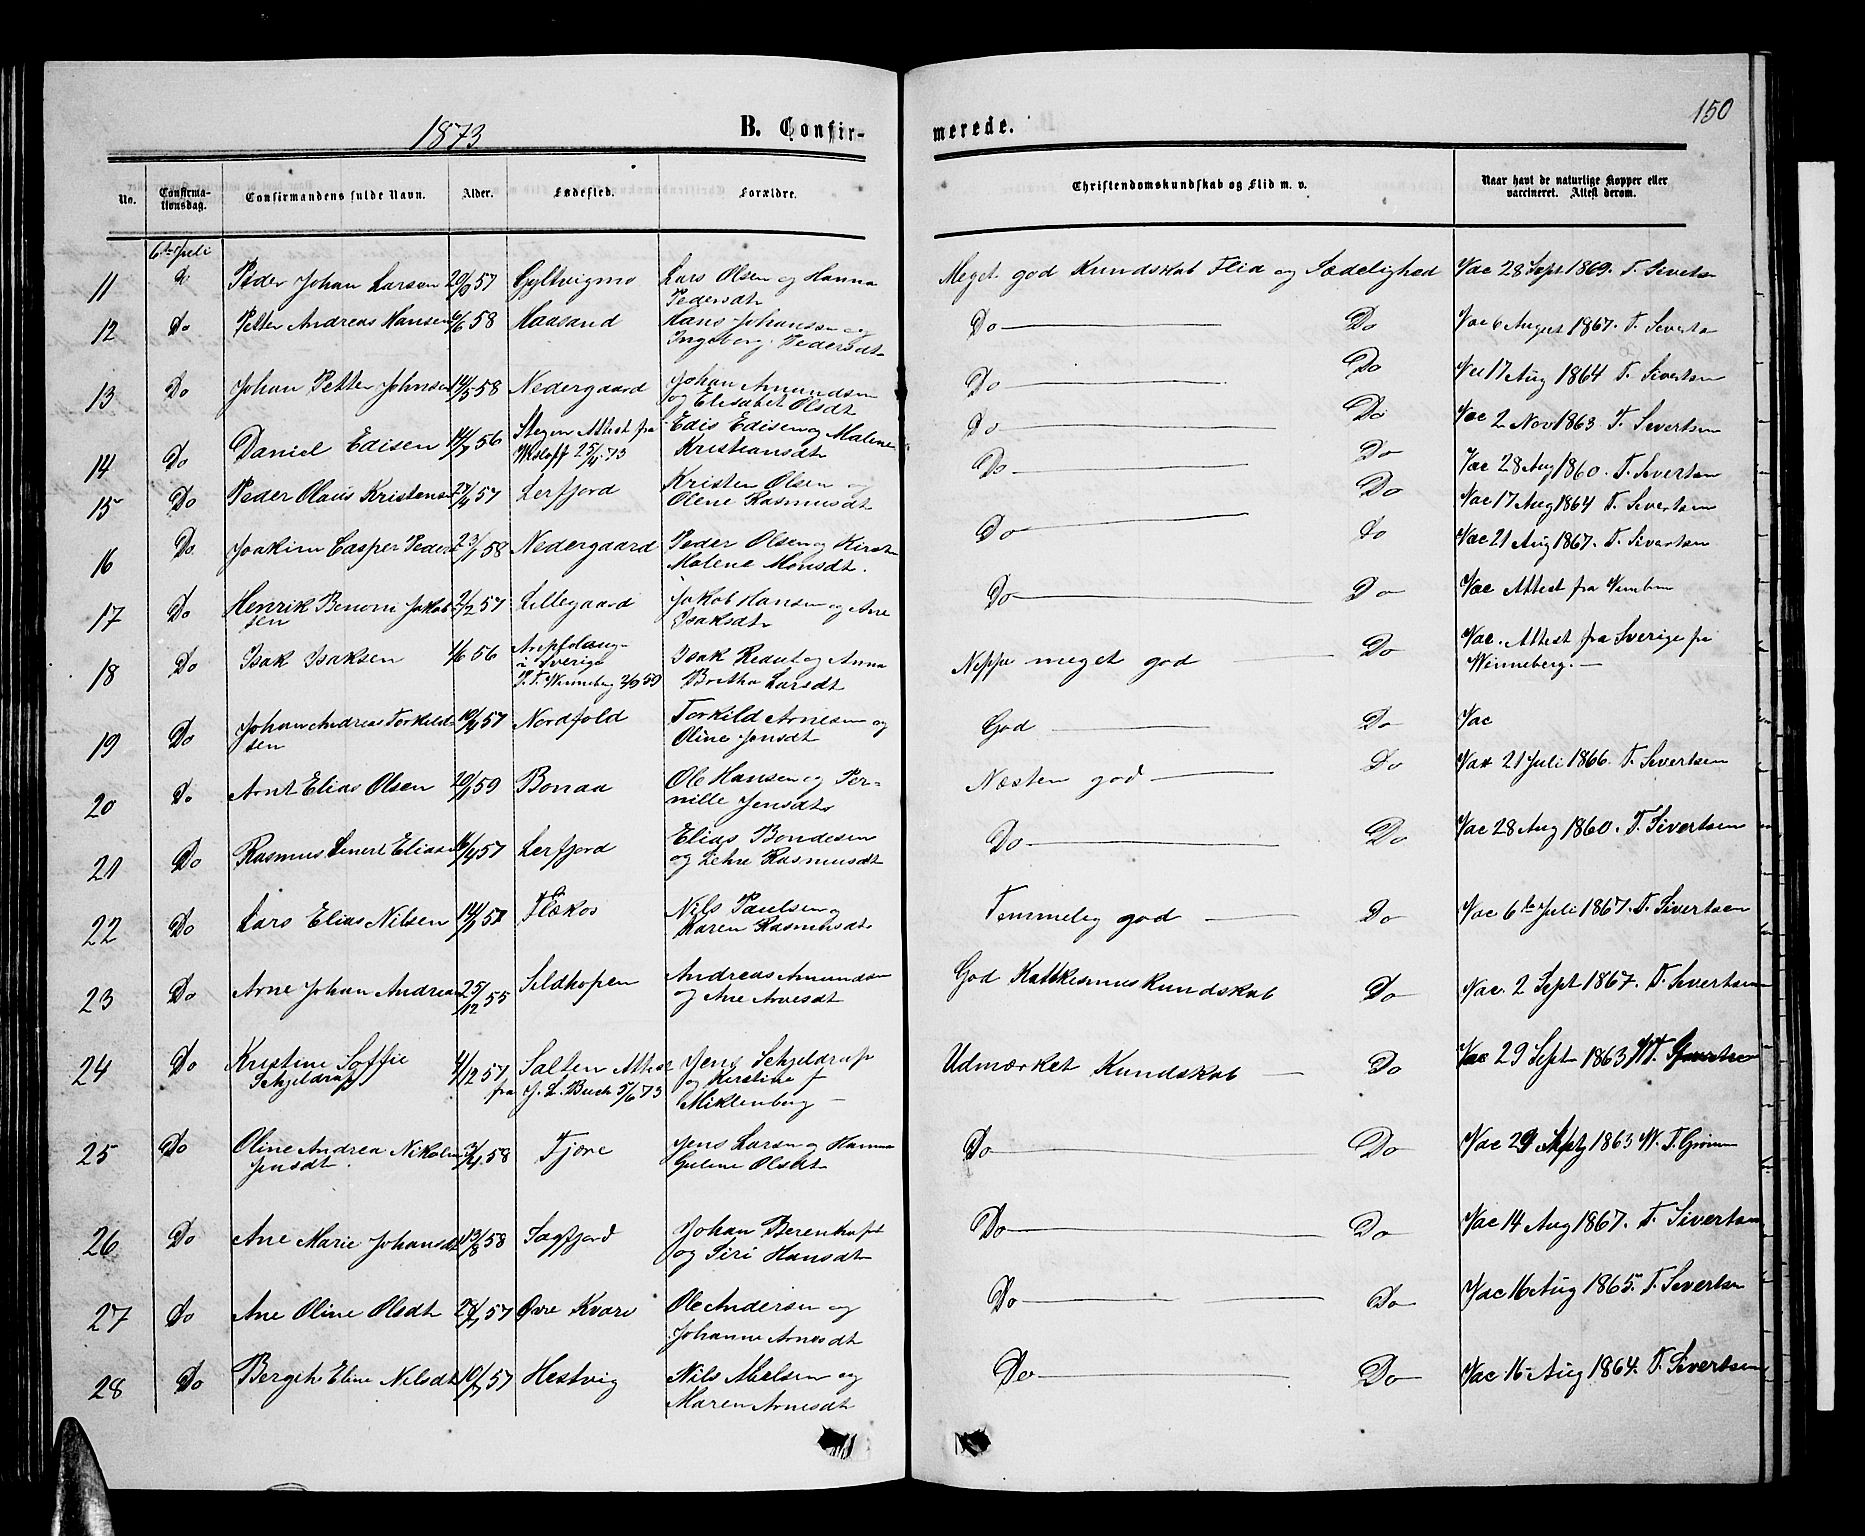 1873
B. Confir-
merede.
150
No.
Confirma-
tionsdag.
Confirmandens fulde Navn.
Alder.
Fødested.
Forældre.
Christendomskundskab og Flid m. v.
Naar havt de naturlige Kopper eller
vaccineret. Attest derom.
6te Juli
11 Peder Johan Larsen 57 Gyltvigmo Lars Olsen og Hanna
Pedersdt
Meget god Kundskab Flid og Sædelighed Vac 28 Sept 1869. T. Sivertsen
12 Do Petter Andreas Hansen 58 Maasand Hans Johansen og
Ingeborg Pedersdt
Do Do Vac 6 August 1867. T. Sivertsen
13 Do Johan Petter Johnsen 14/5 58 Nedergaard Johan Amundsen
og Elisabet Olsdt
Do Do Vac 17 Aug 1864 T. Sivertsen
14 Do Daniel Edisen 56 Stegen Attest fra Edis Edisen og Malene
25/4 73 Kristiansdt
Do Do Vac 2 Nov 1863 T. Sivertsen
15 Do Peder Olaus Kristensen 57 Lerfjord Kristen Olsen og
Olene Rasmusdt
Do Do Vac 28 Aug 1860. T. Sivertsen
Do Vac 17 Aug 1864 T. Sivertsen
16 Do Joakim Casper Peders 23/1 58 Nedergaard Peder Olsen og Kirst
Malene Monsdt.
Do Do Vac 21 Aug 1867. T. Sivertsen
17 Do Henrik Benoni Jakob 2/2 57 Lillegaard Jakob Hansen og Ane
sen Isaksdt
Do Do Vac Attest fra
18 Do Isak Isaksen 56
i Sverige Isak og Anna
P. T. Winneberg Britha Larsdt
Neppe meget god Do Vac. Attest fra Sverige fra
Winneberg.
19 Do Johan Andreas Torkild- 57 Nordfold Torkild Arnesen og
sen Oline Jonsdt
God Do Vac
20 Do Arnt Elias Olsen 59 Bonaa Ole Hansen og Per-
nille Jensdt
Næsten god Do Vac 21 Juli 1866. T. Sivertsen
21 Do Rasmus Lenert Eliasen 57 Lerfjord Elias Bondesen
og Lehne Rasmusdt
Do Do Vac 28 Aug 1860. T. Sivertsen
22 Do Lars Elias Nilsen Flækos Nils Paulsen og
Karen Rasmusdt
Temmelig god Do Vac 6te Juli 1867. T. Sivertsen
23 Do Arne Johan Andreas 25/12 55 Sildhopen Andreas Amundsen
og Ane Arnesdt
God Katekismuskundskab Do Vac. 2 Sept 1867. T. Sivertsen
24 Do Kristine Soffie 4/12 57 Salten Attest Jens Schjeldrup
Schjeldrup fra J. L. Buch 5/6 73 og Kirstine f
Miklenborg
Udmærket Kundskab Do Vac 29 Sept 1863
25 Do Oline Andrea Nikoline 58 Fjøre Jens Larsen og Hanna
Jensdt. Guline Olsdt
Do Do Vac 29 Sept 1863
26 Do Ane Marie Johansdt 13/8 58 Sagfjord Johan Berenhaft
og Siri Hansdt
Do Do Vac 14 Aug 1867. T. Sivertsen
27 Do Ane Oline Olsdt 57 Øvre Kvarv Ole Andersen og
Johanne Arnesdt
Do Do Vac 16 Aug 1865. T. Sivertsen
28 Do Bergithe Eline Nilsdt 10/7 57 Hestvig Nils Nielsen og
Maren Arnesdt
Do Do Vac 16 Aug 1864. T. Sivertsen